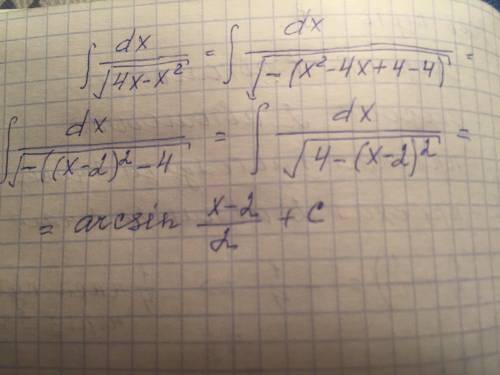 ∫ dx/√(4x-x²) = ∫ dx/√(-(x²-4x+4-4)) =
∫ dx/√(-((x-2)²-4) = ∫ dx/√(4-(x-2)²) =
= arcsin (x-2)/2 + C